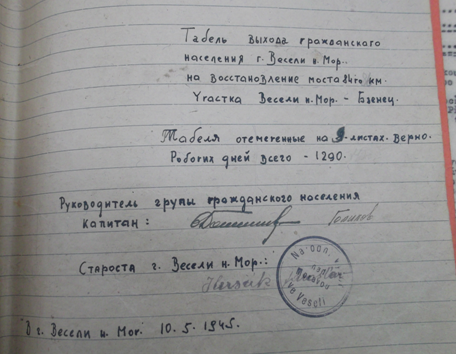 Табель выхода гражданского
населения г. Весели н. Мор..
на восстановление моста 24го км.
Участка Весели н. Мор. - Бзенец.
Табеля отмегенные на листах. Верно.
Робогих дней всего - 1290.
Руководитель групы гражданского населения
капитан:
Староста г. Весели н. Мор.:
Na bon.
ve Veselí
В г. Весели н. Мог. 10. 5. 1945.